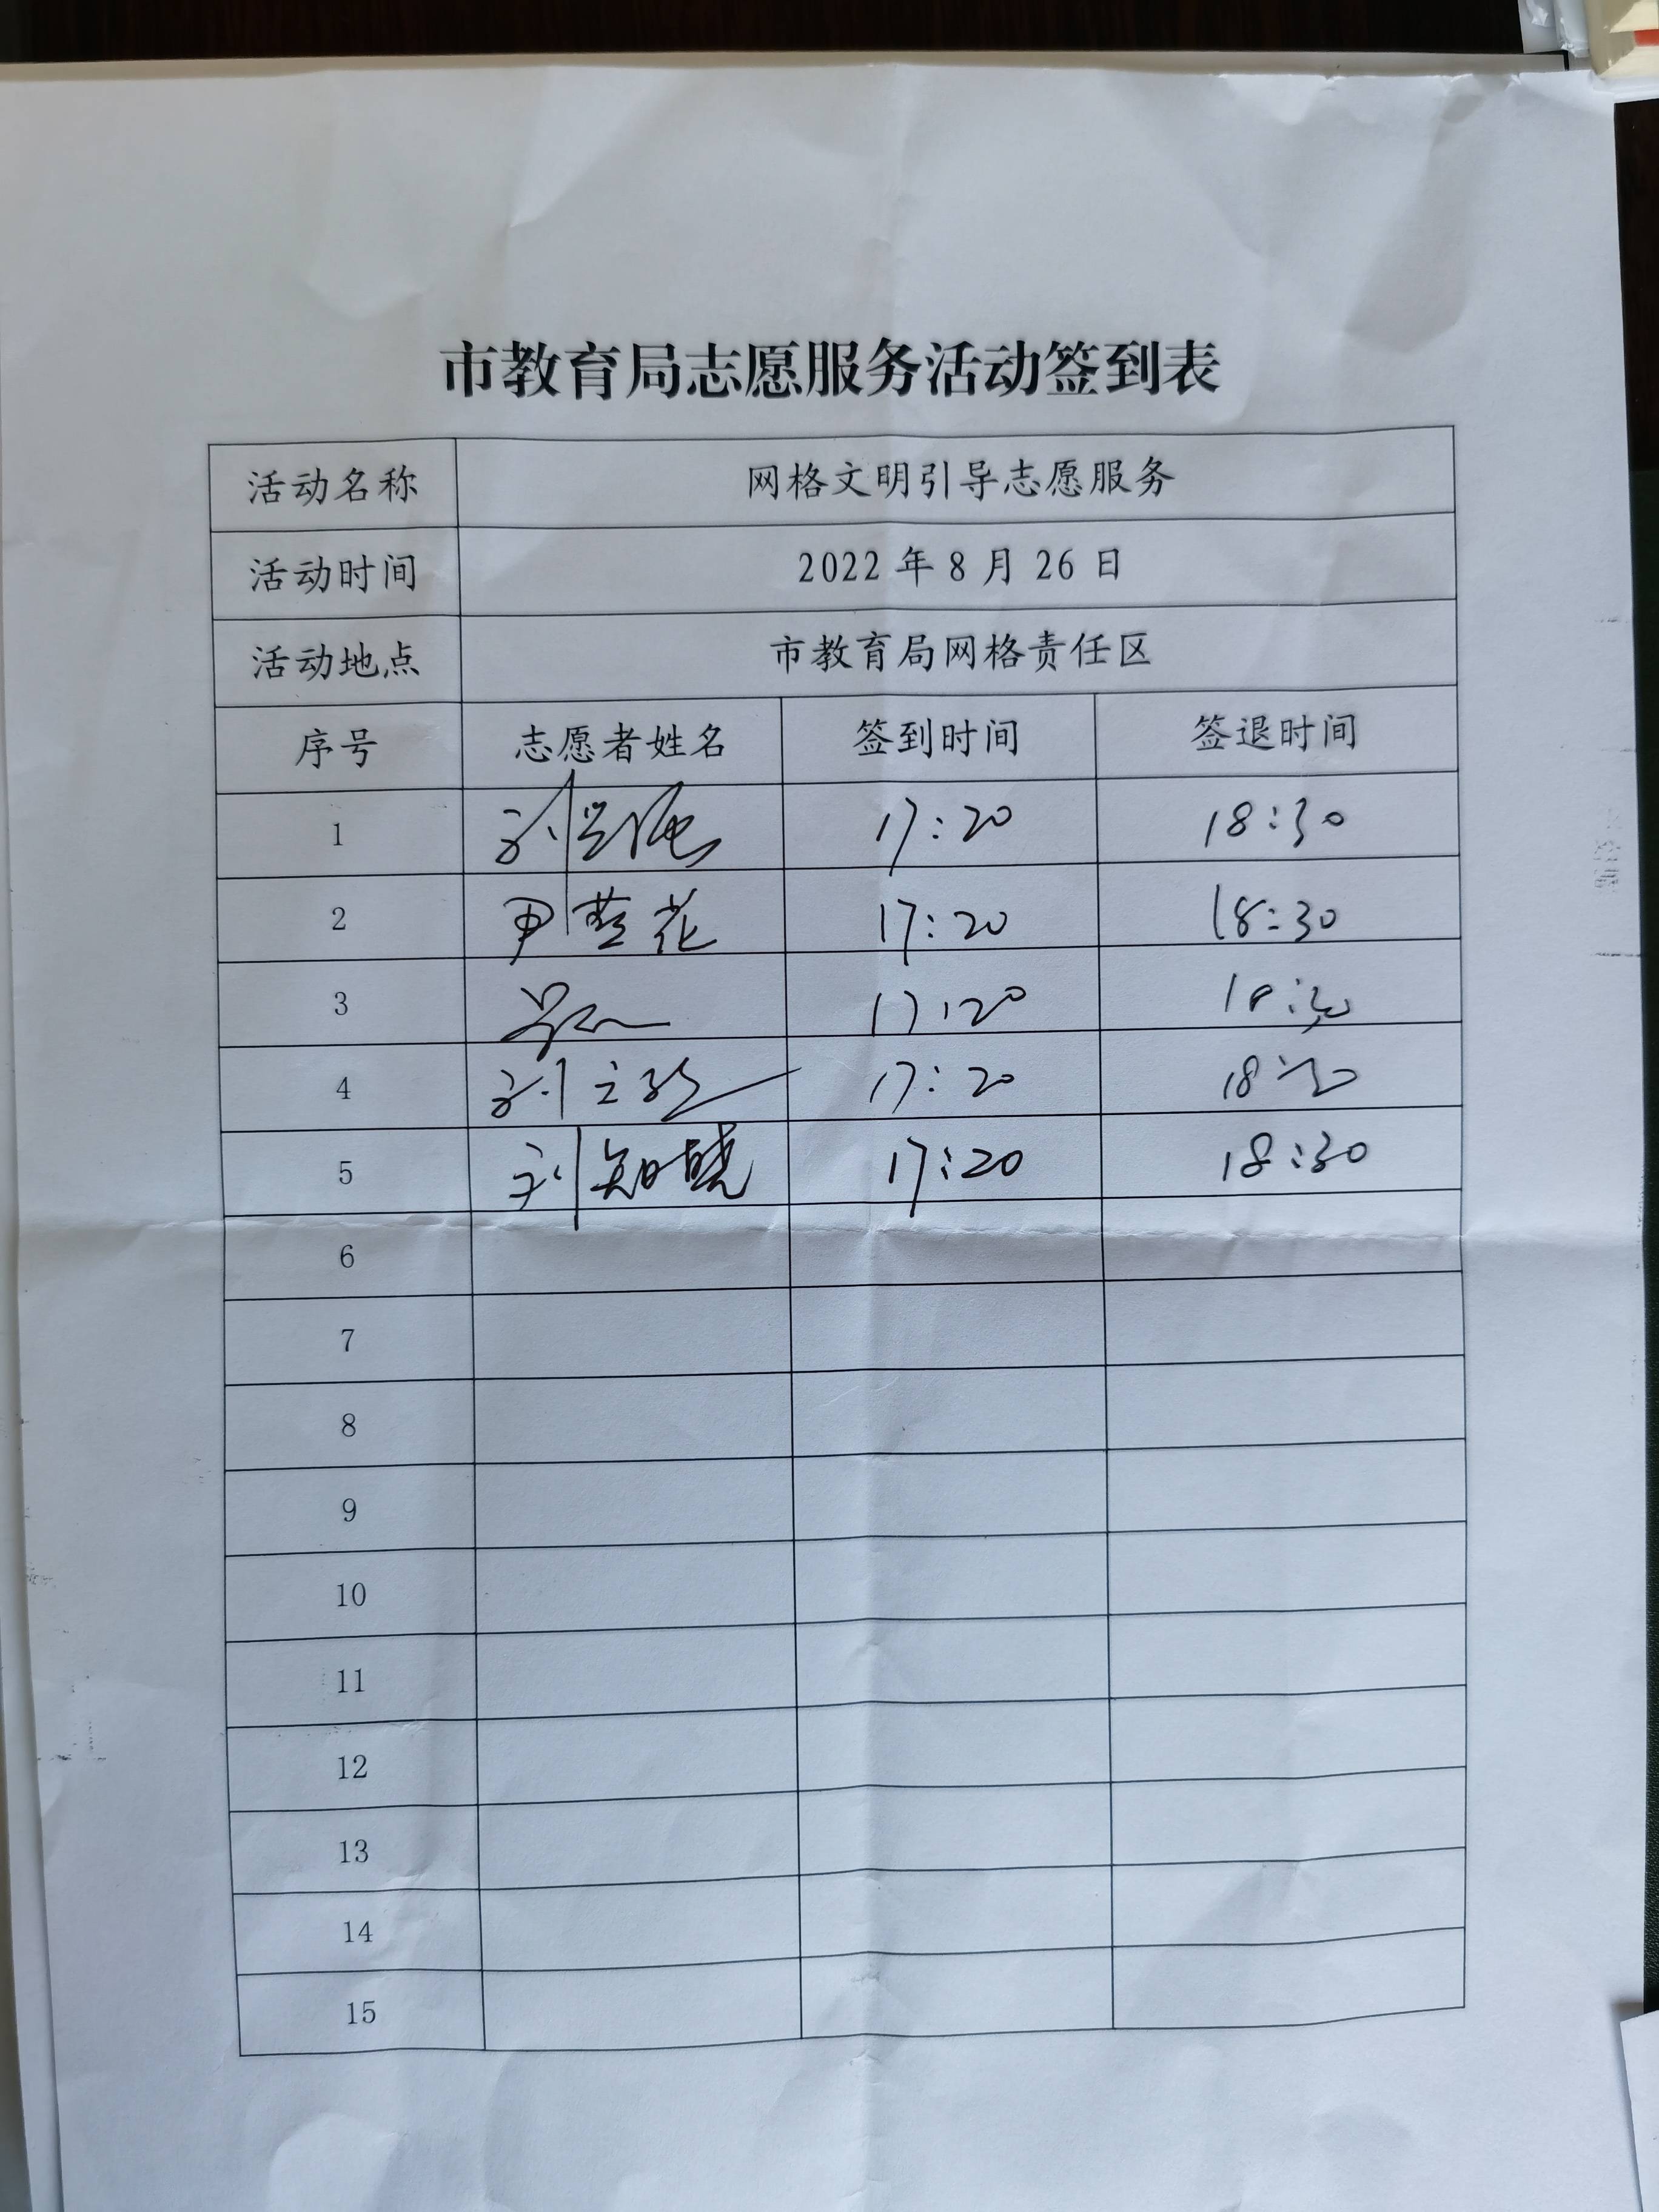 市教育局志愿服务活动签到表
活动名称 网格文明引导志愿服务
活动时间 2022年8月26日
活动地点 市教育局网格责任区
序号 志愿者姓名 签到时间 签退时间
1 刘 17:20 18:30
2 尹 花 17:20 18:30
3 17:20 18:30
4 刘立 17:20 18:30
5 刘知晓 17:20 18:30
6
7
8
9
10
11
12
13
14
15